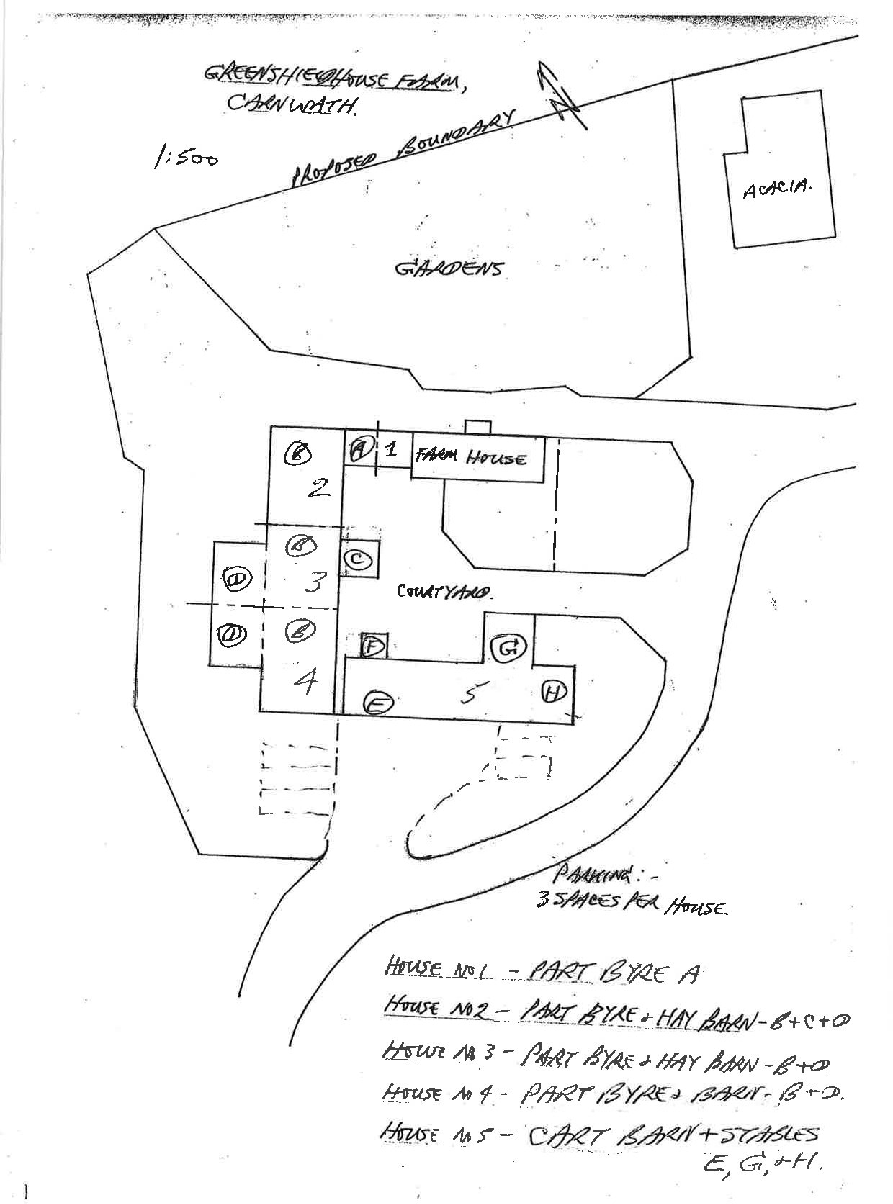 GREENSHIELDHOUSE FARM,
CARNWATH.
N
1:500
PROPOSED BOUNDARY
ACACIA.
GARDENS
B
A
1
FARM HOUSE
2
B
C
D
3
COURTYARD.
D
B
F
G
4
E
5
H
PARKING:-
3 SPACES PER HOUSE.
HOUSE No 1 - PART BYRE A
HOUSE No 2 - PART BYRE + HAY BARN - B + C + D
HOUSE No 3 - PART BYRE + HAY BARN - B + D
HOUSE No 4 - PART BYRE + BARN - B + D.
HOUSE No 5 - CART BARN + STABLES
E, G, + H.